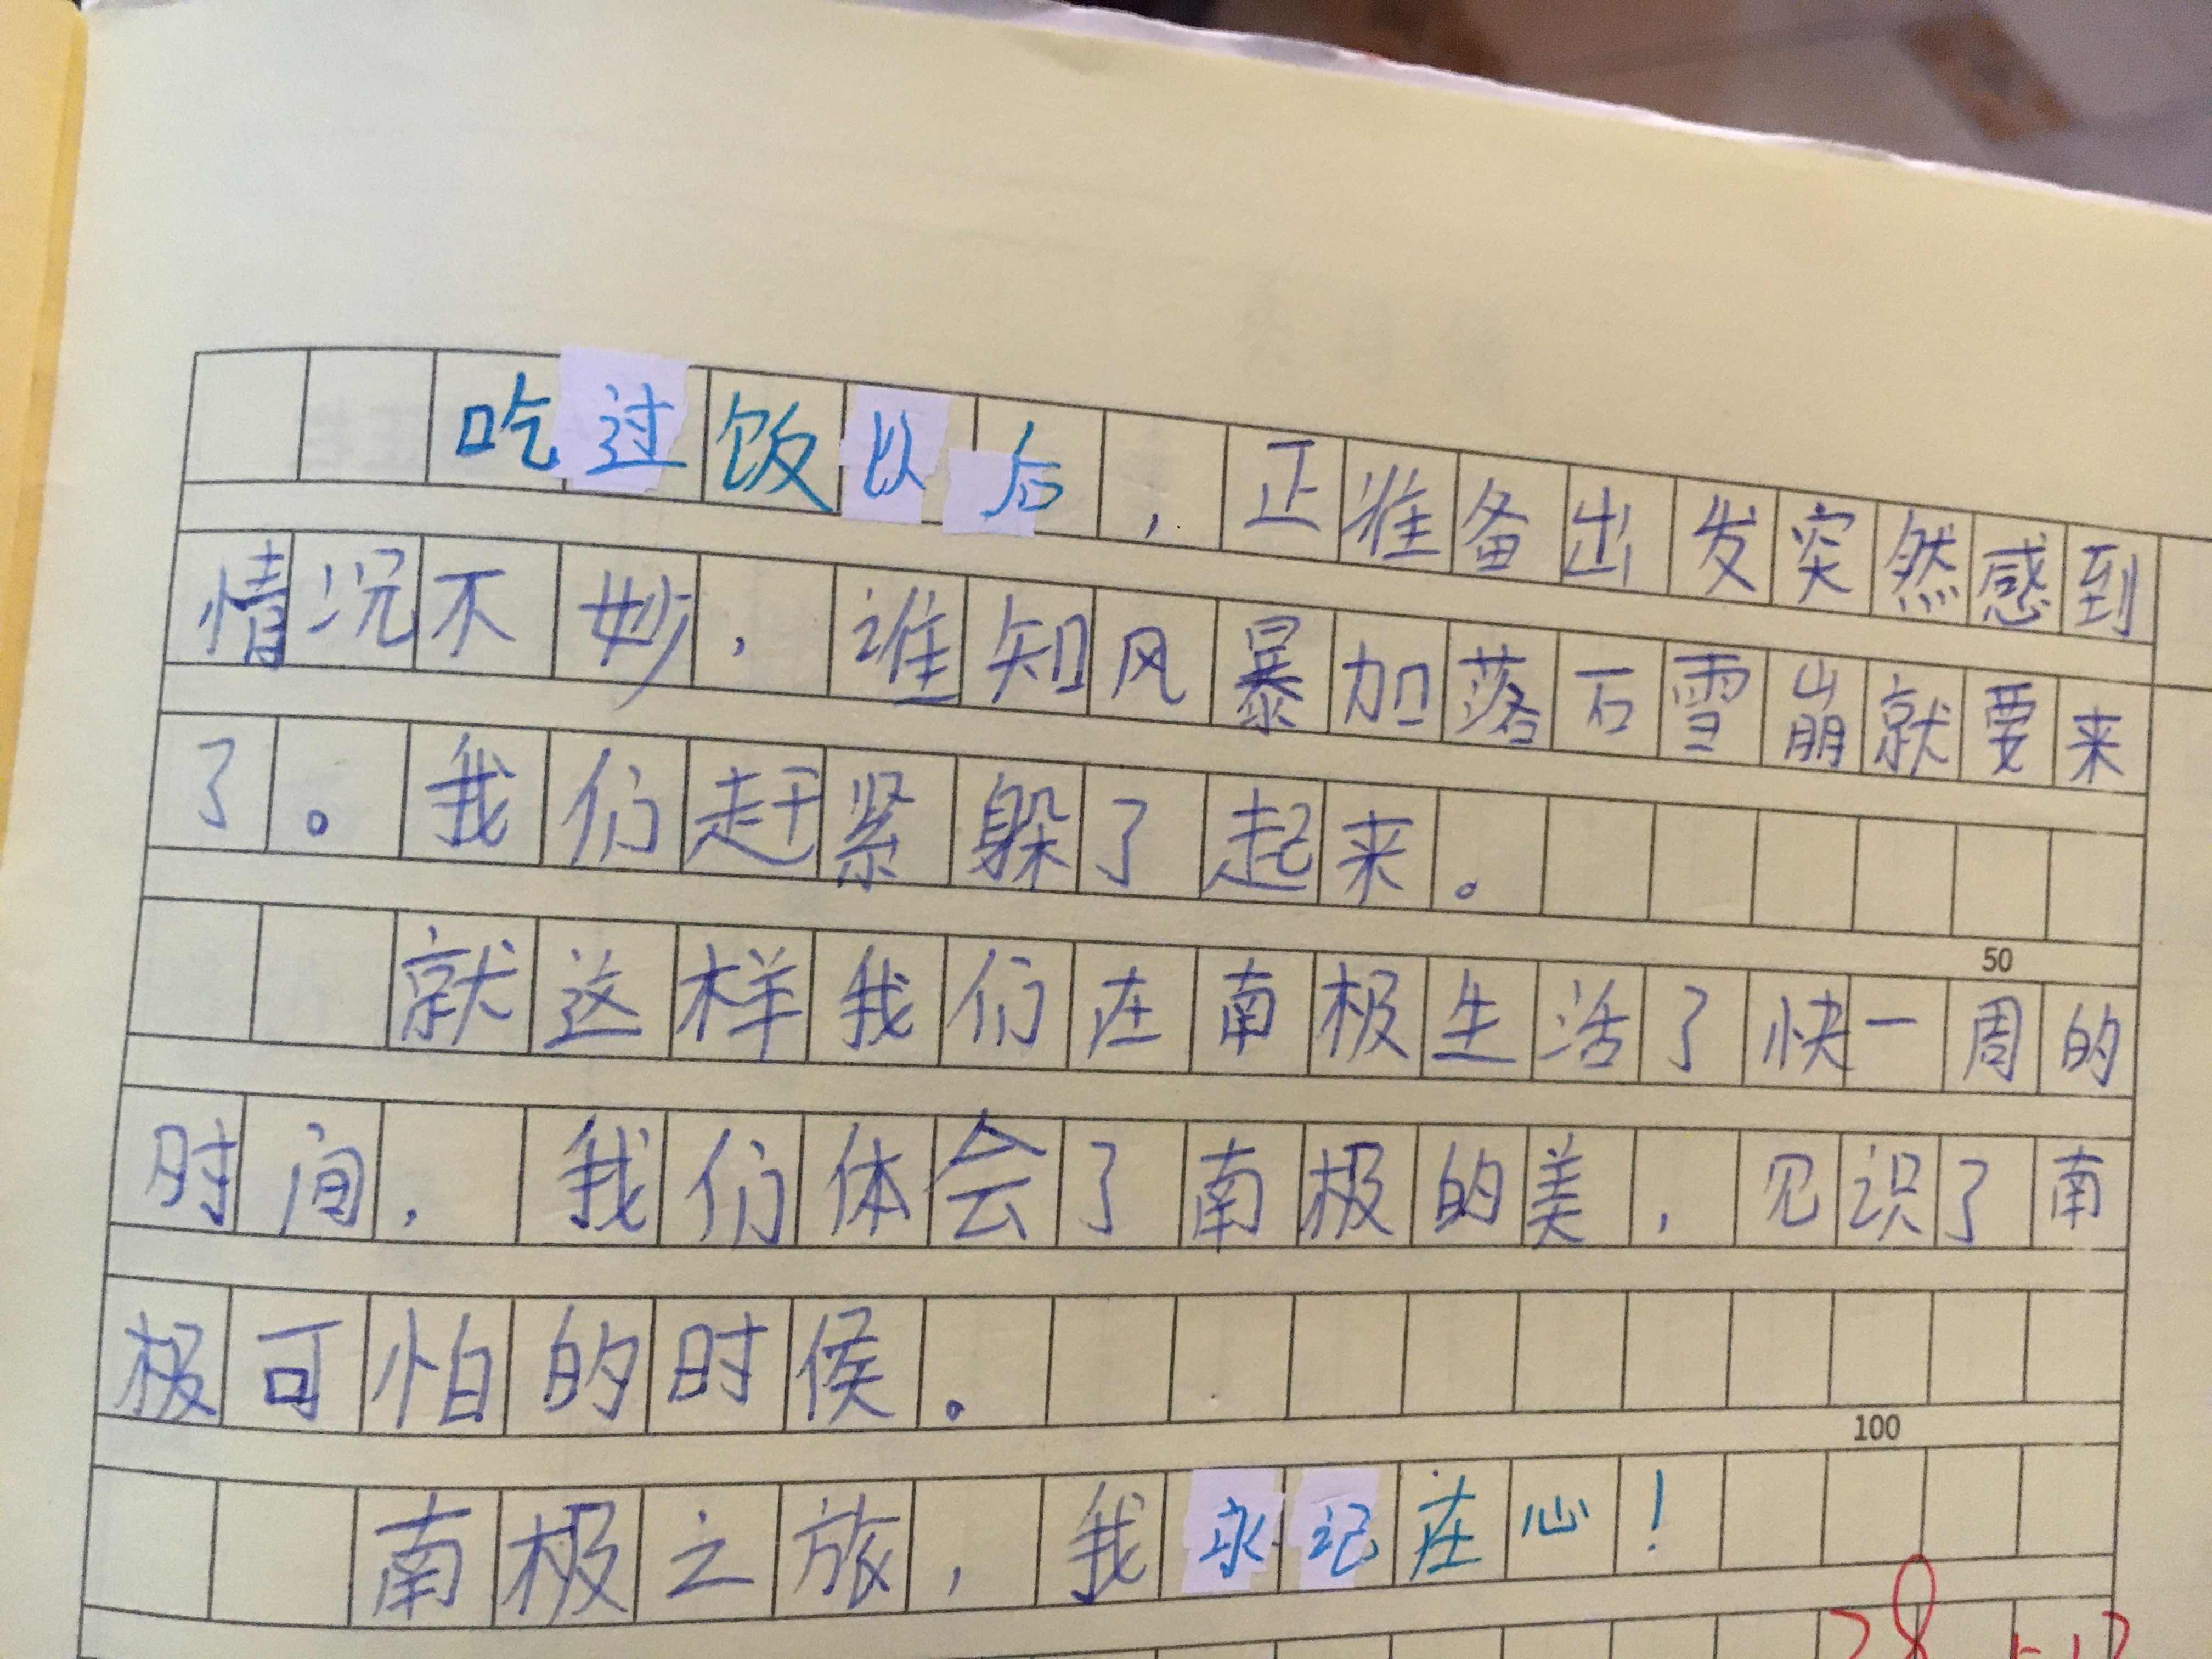 吃过饭以后，正准备出发突然感到
情况不妙，谁知风暴加落石雪崩就要来
了。我们赶紧躲了起来。
50
就这样我们在南极生活了快一周的
时间，我们体会了南极的美，见识了南
极可怕的时候。
100
南极之旅，我永记在心！